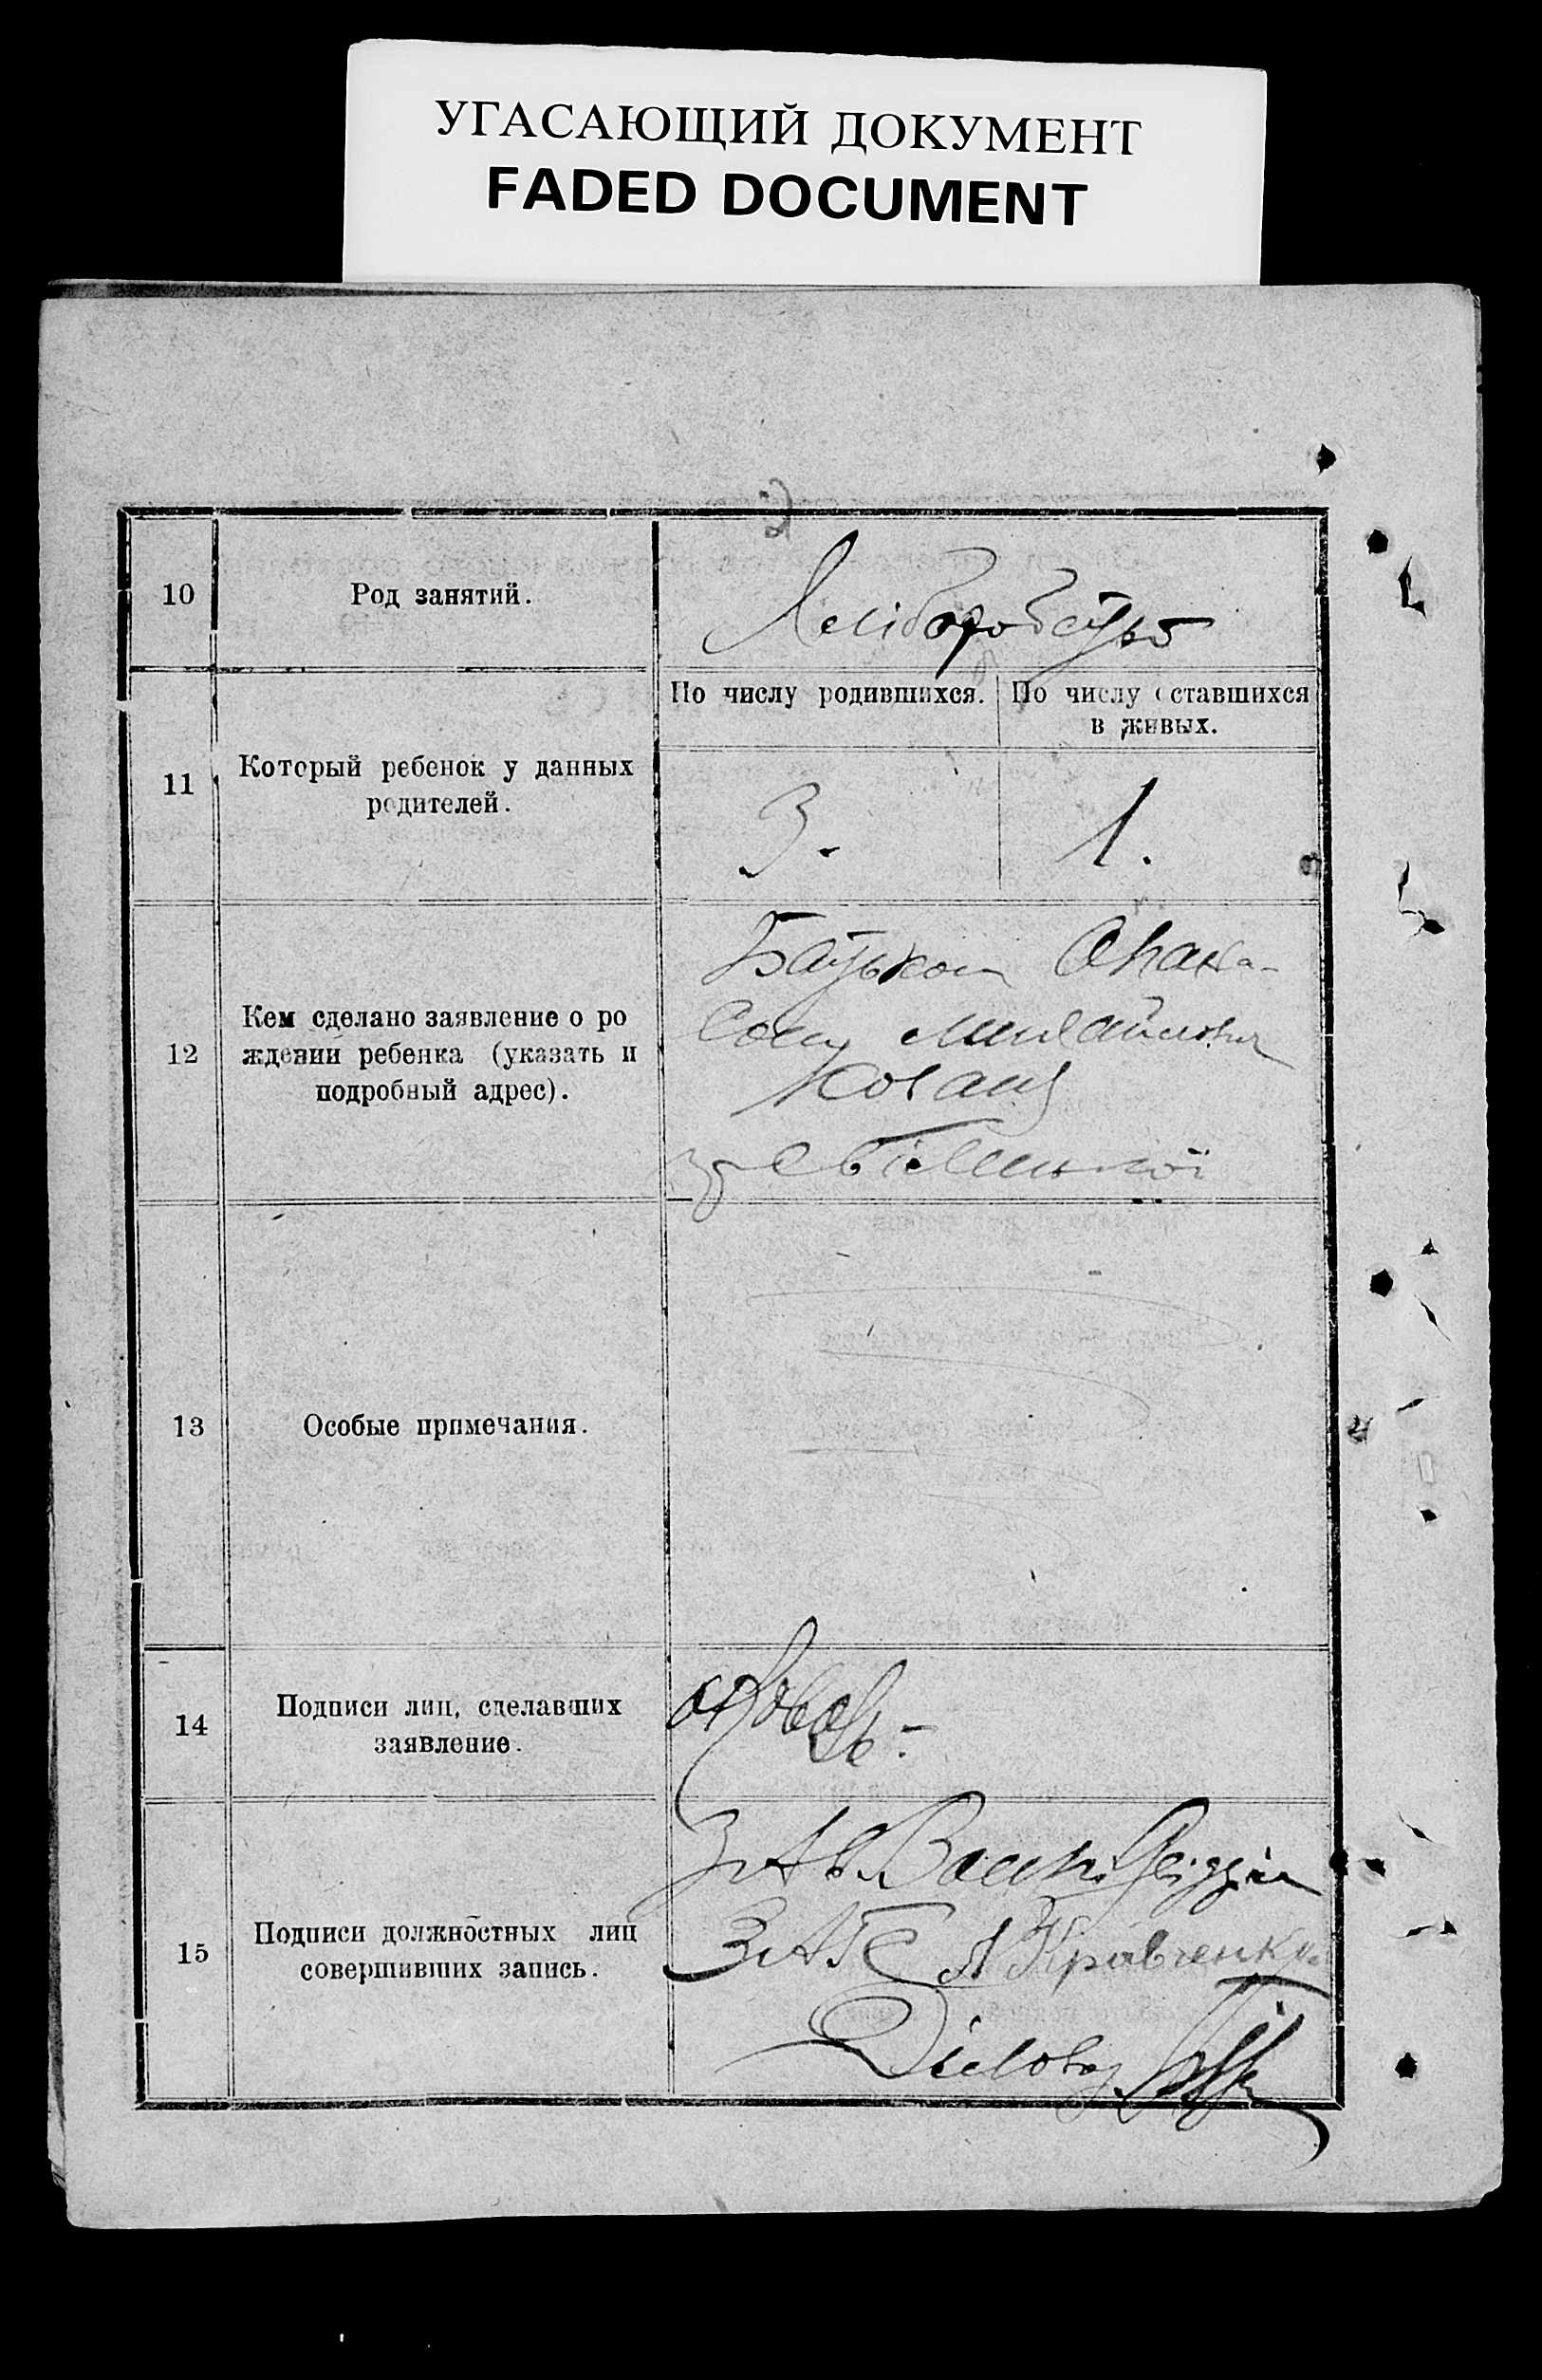 УГАСАЮЩИЙ ДОКУМЕНТ
FADED DOCUMENT
10
Род занятий.
Хліборобство
11
Который ребенок у данных
родителей.
По числу родившихся.
По числу оставшихся
в живых.
3.
1.
12
Кем сделано заявление о ро
ждении ребенка (указать и
подробный адрес).
Батьком Опана-
сом Михайлович
Коваль
13
Особые примечания.
14
Подписи лиц, сделавших
заявление.
15
Подписи должностных лиц
совершивших запись.
Зав.
ЗАГС Кравченко
Діловод